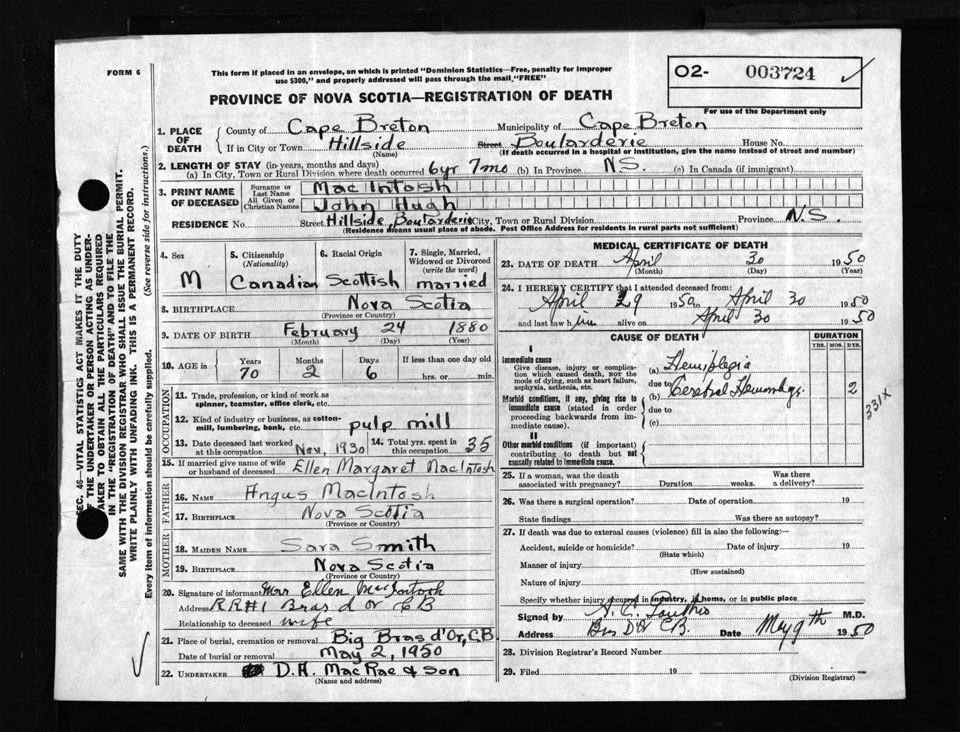 FORM 6
This form if placed in an envelope, on which is printed "Dominion Statistics—Free, penalty for improper
use $300," and properly addressed will pass through the mail, "FREE"
O2- 003724
For use of the Department only
PROVINCE OF NOVA SCOTIA—REGISTRATION OF DEATH
1. PLACE OF DEATH
County of Cape Breton Municipality of Cape Breton
If in City or Town Hillside Street Boularderie House No.
(Name) (If death occurred in a hospital or institution, give the name instead of street and number)
2. LENGTH OF STAY (in years, months and days)
(a) In City, Town or Rural Division where death occurred 6yr 7mo (b) In Province N.S. (c) In Canada (if immigrant)
3. PRINT NAME OF DECEASED
Surname or Last Name MacIntosh
All Given or Christian Names John Hugh
RESIDENCE No. Street Hillside, Boularderie City, Town or Rural Division Province N.S.
(Residence means usual place of abode. Post Office Address for residents in rural parts not sufficient)
4. Sex M
5. Citizenship (Nationality) Canadian
6. Racial Origin Scottish
7. Single, Married, Widowed or Divorced (write the word) married
8. BIRTHPLACE Nova Scotia
(Province or Country)
9. DATE OF BIRTH February 24 1880
(Month) (Day) (Year)
10. AGE in Years 70 Months 2 Days 6 If less than one day old hrs. or min.
OCCUPATION
11. Trade, profession, or kind of work as spinner, teamster, office clerk, etc.
12. Kind of industry or business, as cotton-mill, lumbering, bank, etc. pulp mill
13. Date deceased last worked at this occupation Nov, 1930 14. Total yrs. spent in this occupation 35
15. If married give name of wife or husband of deceased Ellen Margaret MacIntosh
FATHER
16. NAME Angus MacIntosh
17. BIRTHPLACE Nova Scotia
(Province or Country)
MOTHER
18. MAIDEN NAME Sara Smith
19. BIRTHPLACE Nova Scotia
(Province or Country)
20. Signature of informant Mrs Ellen MacIntosh
Address RR#1 Bras d'Or CB
Relationship to deceased wife
21. Place of burial, cremation or removal Big Bras d'Or, C.B.
Date of burial or removal May 2, 1950
22. UNDERTAKER D.A. MacRae & Son
(Name and address)
MEDICAL CERTIFICATE OF DEATH
23. DATE OF DEATH April 30 1950
(Month) (Day) (Year)
24. I HEREBY CERTIFY that I attended deceased from:
April 29 1950 to April 30 1950
and last saw him alive on April 30 1950
CAUSE OF DEATH DURATION
YRS. MOS. DYS.
I
Immediate cause
Give disease, injury or complication which caused death, not the mode of dying, such as heart failure, asphyxia, asthenia, etc.
(a) Hemiplegia
due to
(b) Cerebral Hemorrhage 2
Morbid conditions, if any, giving rise to immediate cause (stated in order proceeding backwards from immediate cause).
due to
(c)
331X
II
Other morbid conditions (if important) contributing to death but not causally related to immediate cause.
25. If a woman, was the death associated with pregnancy? Duration weeks. Was there a delivery?
26. Was there a surgical operation? Date of operation 19
State findings Was there an autopsy?
27. If death was due to external causes (violence) fill in also the following:
Accident, suicide or homicide? Date of injury 19
(State which)
Manner of injury
(How sustained)
Nature of injury
Specify whether injury occurred in industry, in home, or in public place
Signed by M.D.
Address Bras D'Or C.B. Date May 9th 1950
28. Division Registrar's Record Number
29. Filed 19
(Division Registrar)
SEC. 46—VITAL STATISTICS ACT MAKES IT THE DUTY
OF THE UNDERTAKER OR PERSON ACTING AS UNDER-
TAKER TO OBTAIN ALL THE PARTICULARS REQUIRED
IN THE "REGISTRATION OF DEATH" AND TO FILE THE
SAME WITH THE DIVISION REGISTRAR WHO SHALL ISSUE THE BURIAL PERMIT.
WRITE PLAINLY WITH UNFADING INK. THIS IS A PERMANENT RECORD.
Every item of information should be carefully supplied. (See reverse side for instructions.)